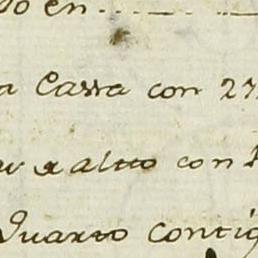 do en
a Cassa con 27
alto con
Quarto contig